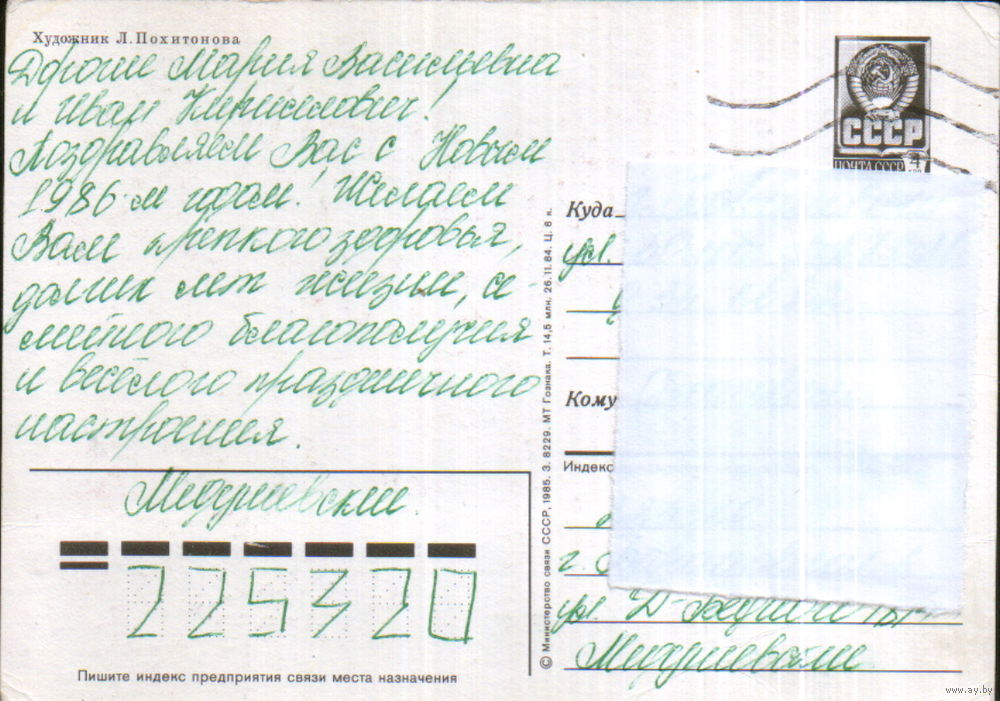 Художник Л. Похитонова
Дорогие Мария Васильевна
и Иван Кириллович!
Поздравляем Вас с Новым
1986-м годом! Желаем
Вам крепкого здоровья,
долгих лет жизни, се-
мейного благополучия
и весёлого праздничного
настроения.
225320
Пишите индекс предприятия связи места назначения
© Министерство связи СССР, 1985. З. 8229. МТ Гознака. Т. 14,5 млн. 26.11.84. Ц. 6 к.
СССР
ПОЧТА СССР 4
Куда
ул.
Кому
Индекс
г.
ул.
www.ay.by